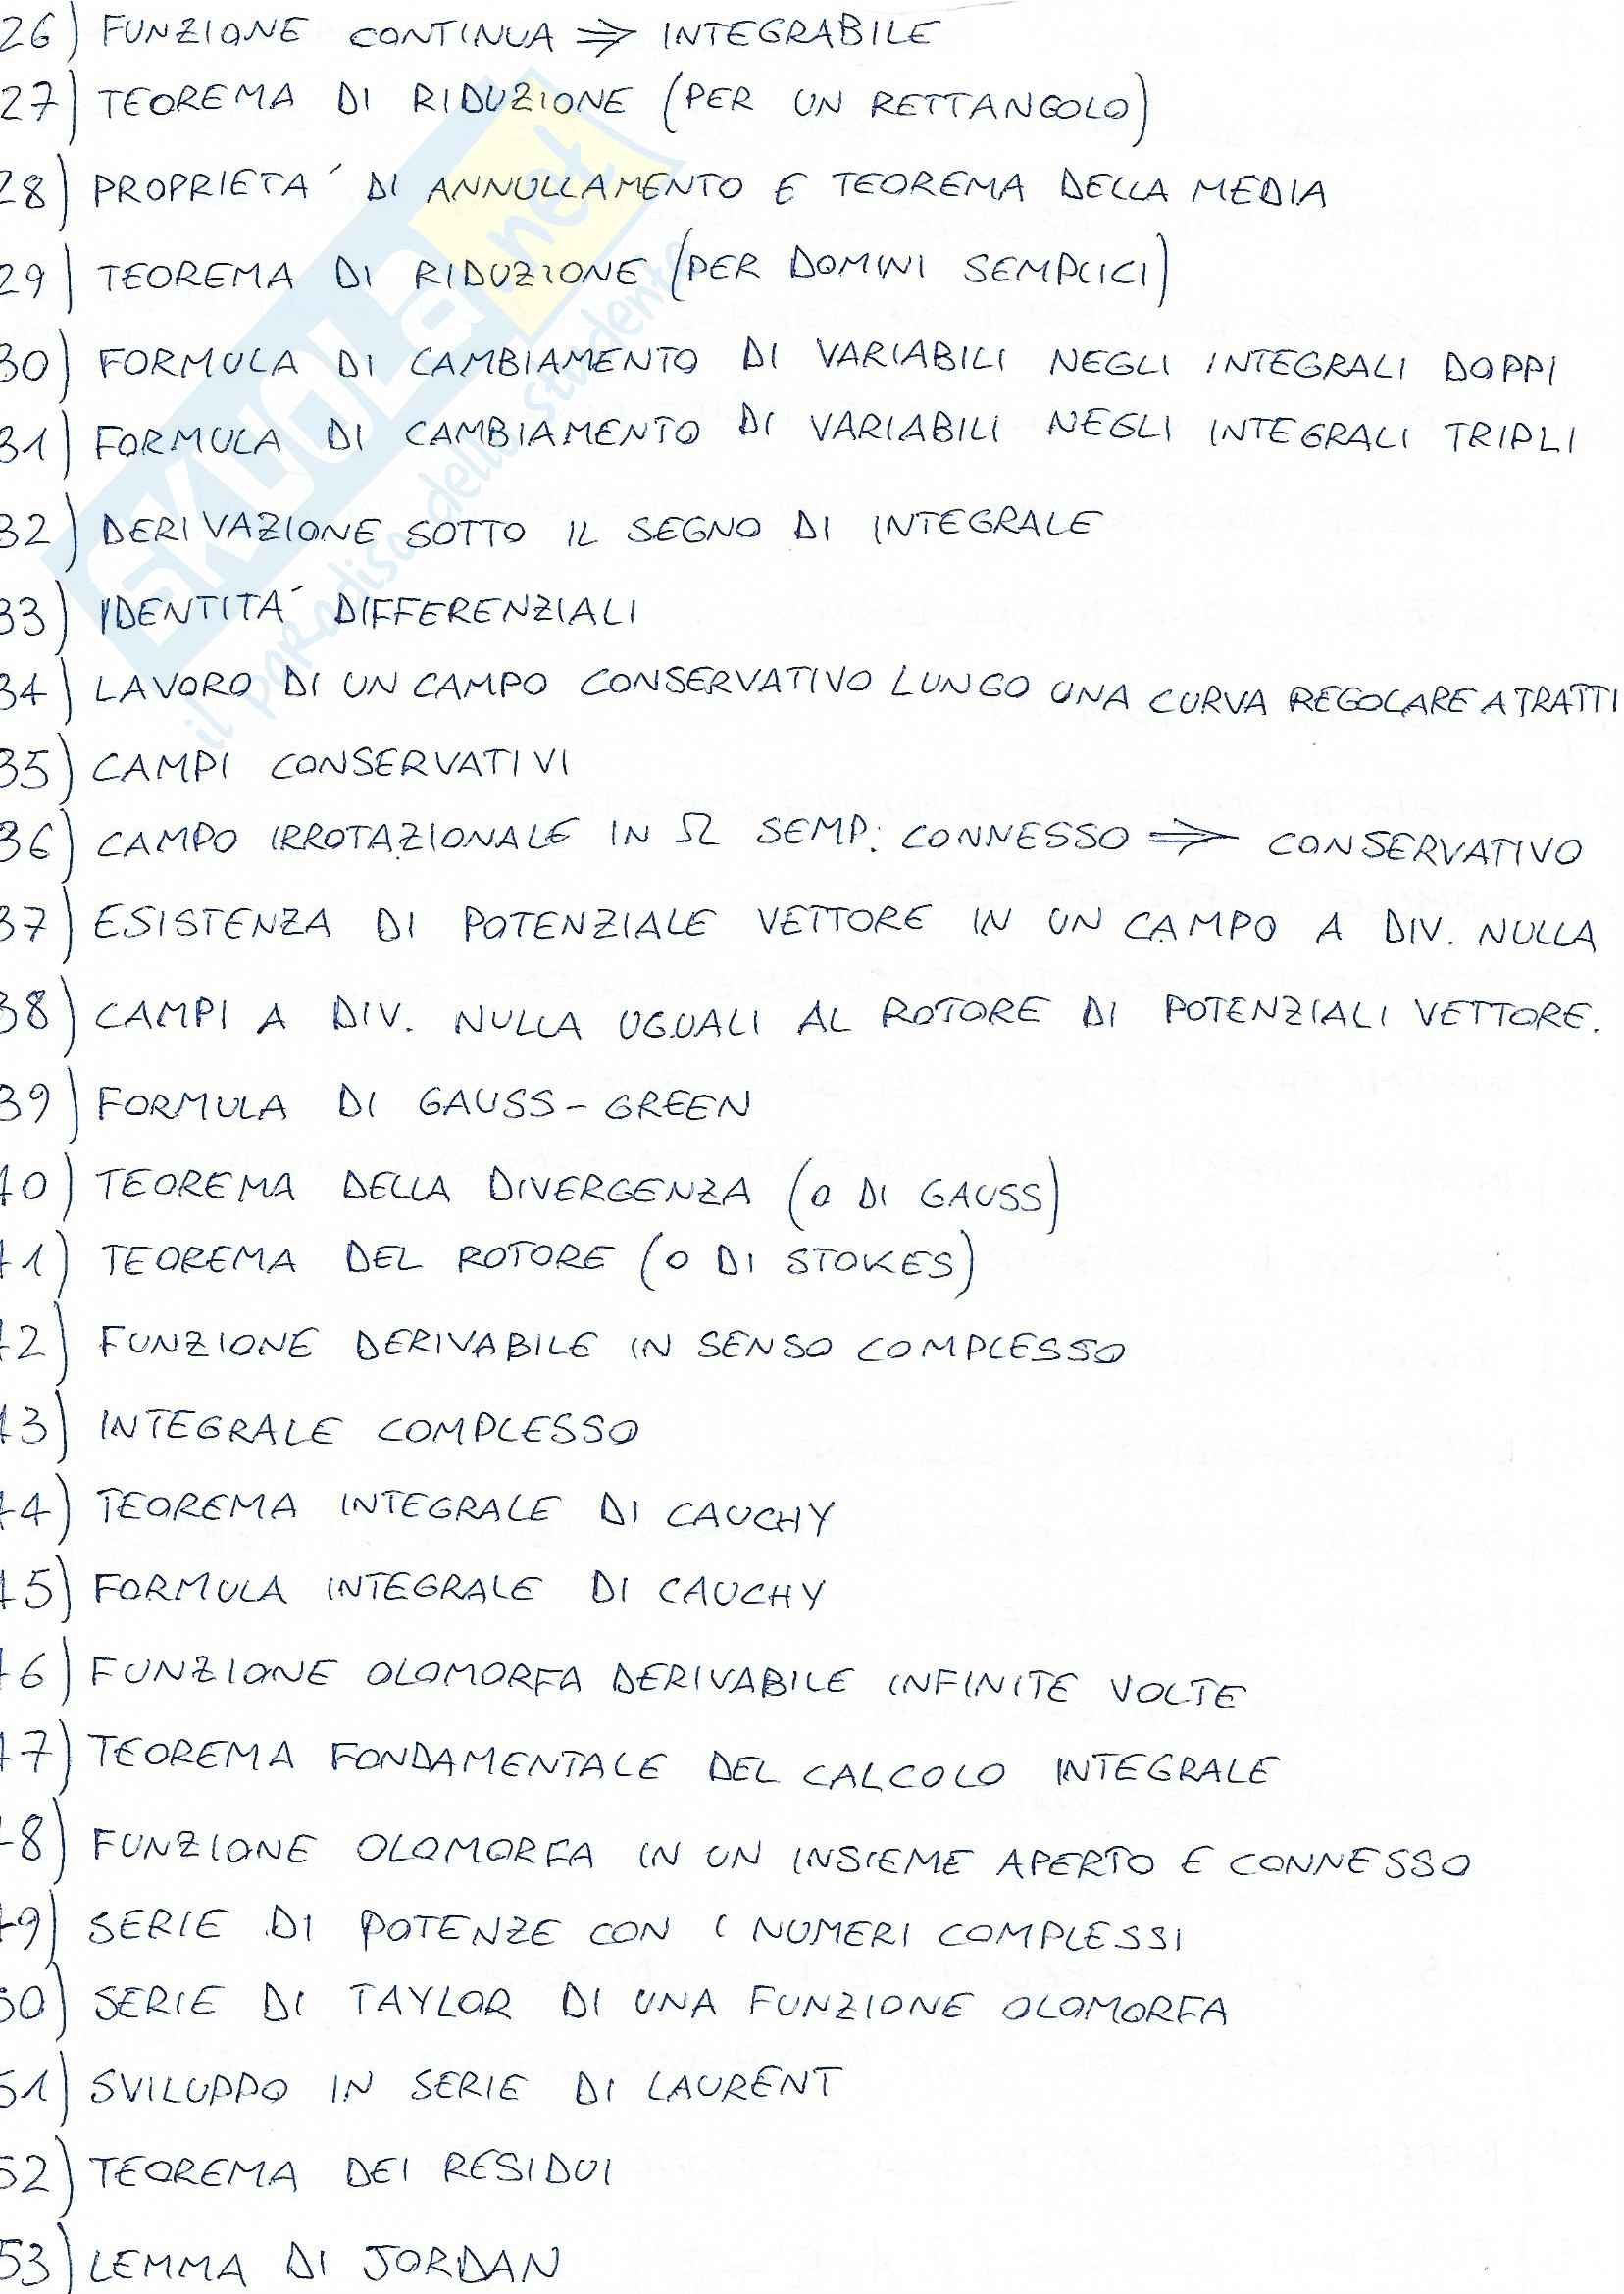 26) FUNZIONE CONTINUA => INTEGRABILE
27) TEOREMA DI RIDUZIONE (PER UN RETTANGOLO)
28) PROPRIETA' DI ANNULLAMENTO E TEOREMA DELLA MEDIA
29) TEOREMA DI RIDUZIONE (PER DOMINI SEMPLICI)
30) FORMULA DI CAMBIAMENTO DI VARIABILI NEGLI INTEGRALI DOPPI
31) FORMULA DI CAMBIAMENTO DI VARIABILI NEGLI INTEGRALI TRIPLI
32) DERIVAZIONE SOTTO IL SEGNO DI INTEGRALE
33) IDENTITA' DIFFERENZIALI
34) LAVORO DI UN CAMPO CONSERVATIVO LUNGO UNA CURVA REGOLARE A TRATTI
35) CAMPI CONSERVATIVI
36) CAMPO IRROTAZIONALE IN Ω SEMP. CONNESSO => CONSERVATIVO
37) ESISTENZA DI POTENZIALE VETTORE IN UN CAMPO A DIV. NULLA
38) CAMPI A DIV. NULLA UGUALI AL ROTORE DI POTENZIALI VETTORE.
39) FORMULA DI GAUSS-GREEN
40) TEOREMA DELLA DIVERGENZA (O DI GAUSS)
41) TEOREMA DEL ROTORE (O DI STOKES)
42) FUNZIONE DERIVABILE IN SENSO COMPLESSO
43) INTEGRALE COMPLESSO
44) TEOREMA INTEGRALE DI CAUCHY
45) FORMULA INTEGRALE DI CAUCHY
46) FUNZIONE OLOMORFA DERIVABILE INFINITE VOLTE
47) TEOREMA FONDAMENTALE DEL CALCOLO INTEGRALE
48) FUNZIONE OLOMORFA IN UN INSIEME APERTO E CONNESSO
49) SERIE DI POTENZE CON I NUMERI COMPLESSI
50) SERIE DI TAYLOR DI UNA FUNZIONE OLOMORFA
51) SVILUPPO IN SERIE DI LAURENT
52) TEOREMA DEI RESIDUI
53) LEMMA DI JORDAN
SKUOLA.net
il paradiso dello studente